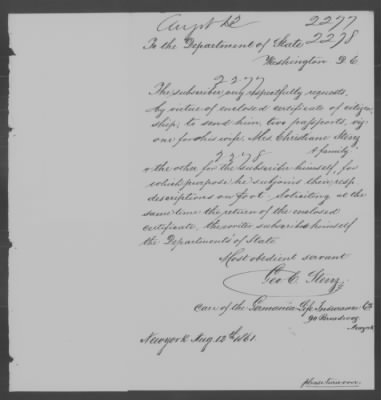 2277
2278
To the Department of State
Washington D. C
2277
The subscriber, very respectfully requests,
by virtue of enclosed certificate of citizen
ship, to send him, two passports, viz
one for his wife, Mrs Christiane Stenz
& family
2278
& the other for the subscriber himself, for
which purpose he subjoins their resp
descriptions on foot, soliciting at the
same time the return of the enclosed
certificate, the writer subscribes himself
the Departments of State
Most obedient servant
Geo C. Stenz
Care of the Germania Life Insurance Co
90 Broadway
Newyork
Newyork Aug. 12th 1861.
please turn over.